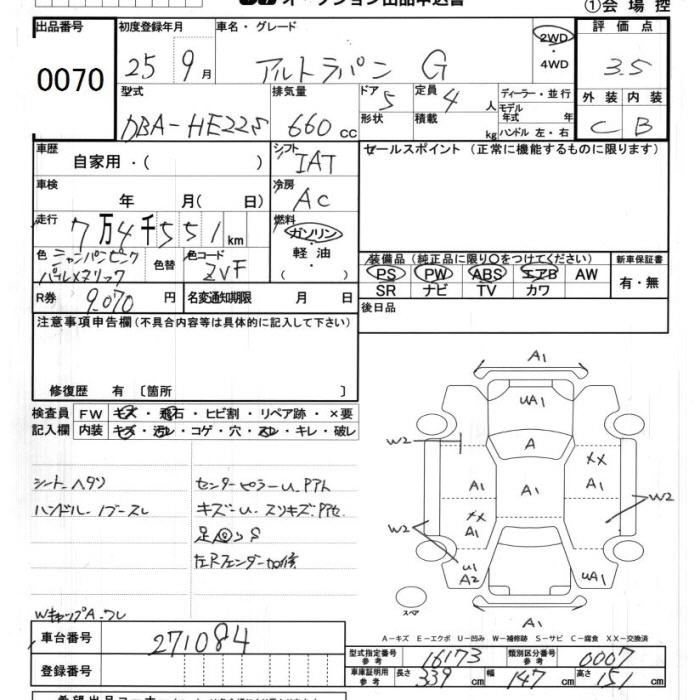 ①会場控
出品番号
0070
初度登録年月
25 9月
車名・グレード
アルトラパン G
2WD
・
4WD
評価点
3.5
外装 内装
C B
型式
DBA-HE22S
排気量
660 cc
ドア
5
形状
定員
4 人
積載
kg
ディーラー・並行
モデル
年式 年
ハンドル 左・右
車歴
自家用・( )
シフト
IAT
車検
年 月( 日)
冷房
AC
走行
7万4千551km
燃料
ガソリン
・
軽油
・
( )
色 シャンパンピンク
パールメタリック
色替
色コード
ZVF
R券 9,070 円
名変通知期限 月 日
セールスポイント (正常に機能するものに限ります)
装備品 (純正品に限り○をつけてください)
PS PW ABS エアB AW
SR ナビ TV カワ
新車保証書
有・無
後日品
注意事項申告欄(不具合内容等は具体的に記入して下さい)
修復歴 有 〔箇所 〕
検査員
記入欄
FW キズ・飛石・ヒビ割・リペア跡・×要
内装 キズ・汚レ・コゲ・穴・スレ・キレ・破レ
シートヘタリ
ハンドルノブースレ
センターピラーU.
キズ-U.
左Rフェンダー加修
WキャップA.ワレ
A1
UA1
A
W2
XX
A1
A1
A1
W2
XX
A1
W2
U1
A2
UA1
スペア
A1
A-キズ E-エクボ U-凹み W-補修跡 S-サビ C-腐食 XX-交換済
車台番号
271084
登録番号
型式指定番号
参考
16173
類別区分番号
参考
0007
車庫証明用
参考
長さ 339 cm 幅 147 cm 高さ 151 cm